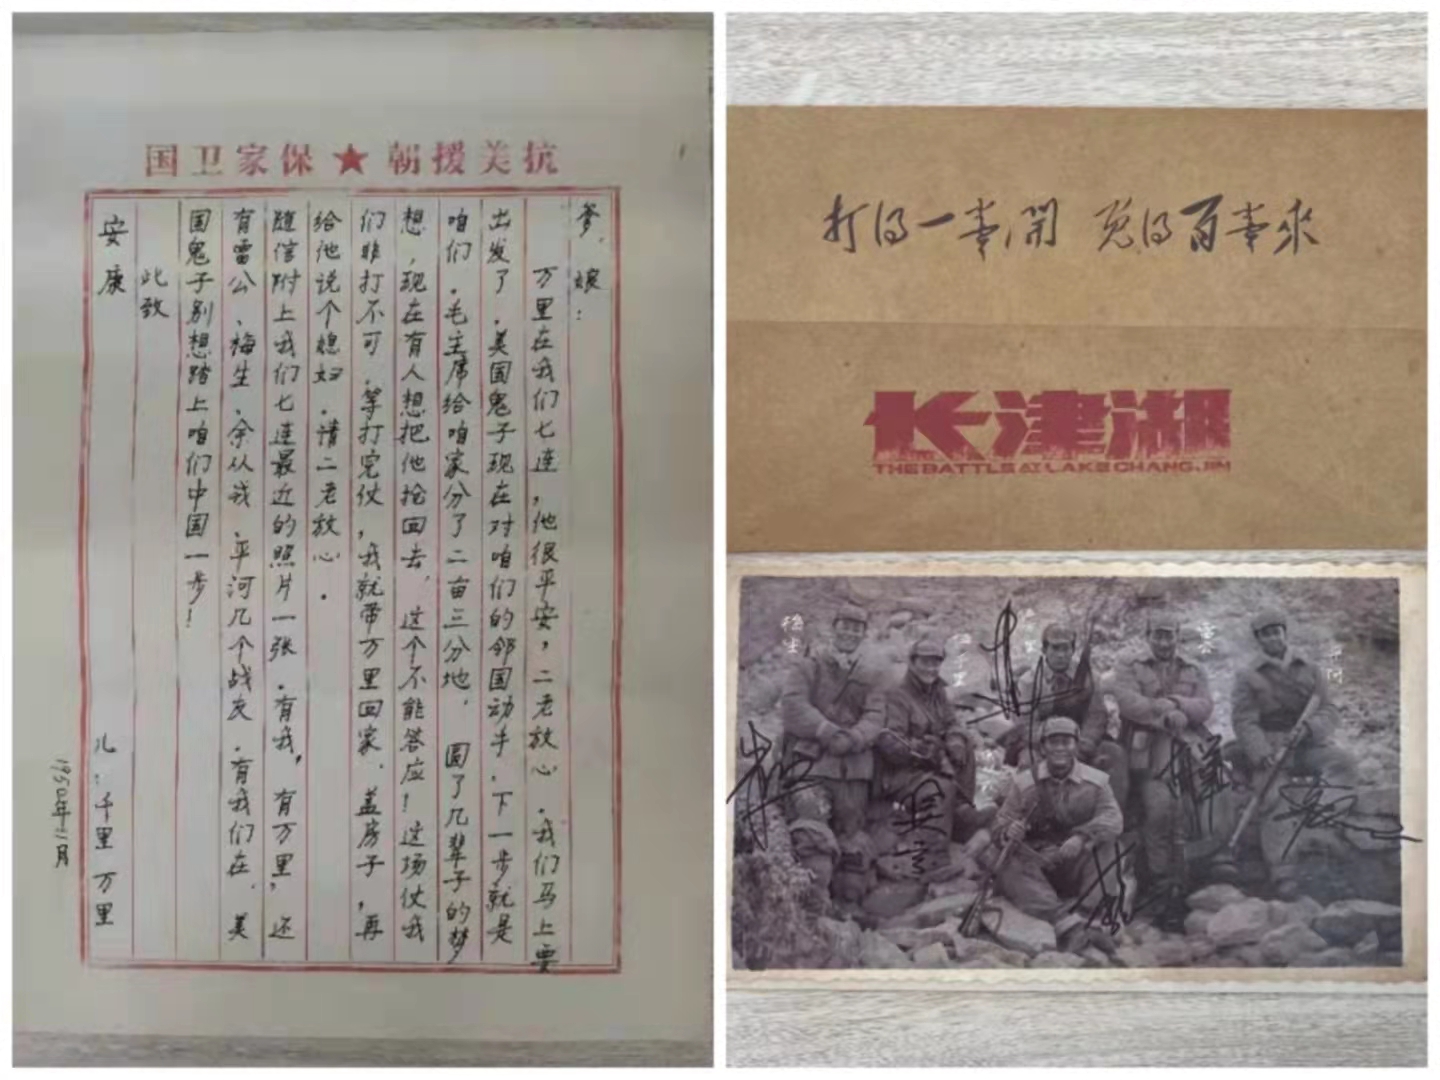 抗美援朝★保家卫国
爹、娘：
万里在我们七连，他很平安，二老放心．我们马上要
出发了．美国鬼子现在对咱们的邻国动手．下一步就是
咱们．毛主席给咱家分了二亩三分地．圆了几辈子的梦
想，现在有人想把他抢回去，这个不能答应！这场仗我
们非打不可．等打完仗，我就带万里回家．盖房子，再
给他说个媳妇．请二老放心．
随信附上我们七连最近的照片一张．有我，有万里，还
有雷公、梅生、余从戎、平河几个战友．有我们在．美
国鬼子别想踏上咱们中国一步！
此致
安康
儿：千里 万里
1950年11月
打得一拳開 免得百拳來
长津湖
THE BATTLE AT LAKE CHANGJIN
梅生
平河